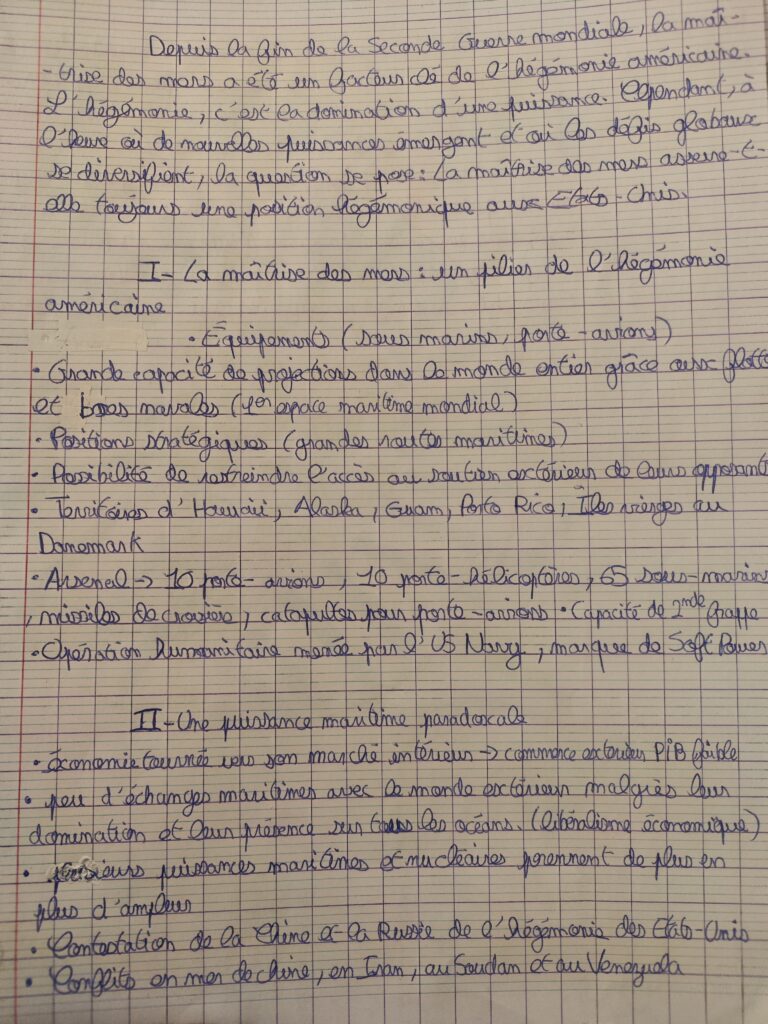 Depuis la fin de la Seconde Guerre mondiale, la maî-
-trise des mers a été un facteur clé de l'hégémonie américaine.
L'hégémonie, c'est la domination d'une puissance. Cependant, à
l'heure où de nouvelles puissances émergent et où les défis globaux
se diversifient, la question se pose : La maîtrise des mers assure-t-
elle toujours une position hégémonique aux Etats-Unis.
I- La maîtrise des mers : un pilier de l'hégémonie
américaine
• Equipements (sous marins, porte-avions)
• Grande capacité de projections dans le monde entier grâce aux flotte
et bases navales (1er espace maritime mondial)
• Positions stratégiques (grandes routes maritimes)
• Possibilité de restreindre l'accès au soutien extérieur de leurs opposants
• Territoires d'Hawaii, Alaska, Guam, Porto Rico, Îles vierges au
Danemark
• Arsenal → 10 porte-avions, 10 porte-hélicoptères, 65 sous-marins
, missiles de croisière, catapultes pour porte-avions • Capacité de 2nde frappe
• Opération humanitaire menée par l'US Navy, marque de Soft Power
II- Une puissance maritime paradoxale
• économie tournée vers son marché intérieur → commerce extérieur PIB faible
• peu d'échanges maritimes avec le monde extérieur malgrès leur
domination et leur présence sur tous les océans. (libéralisme économique)
• plusieurs puissances maritimes et nucléaires prennent de plus en
plus d'ampleur
• Contestation de la Chine et la Russie de l'hégémonie des Etats-Unis
• Conflits en mer de chine, en Iran, au Soudan et au Venezuela